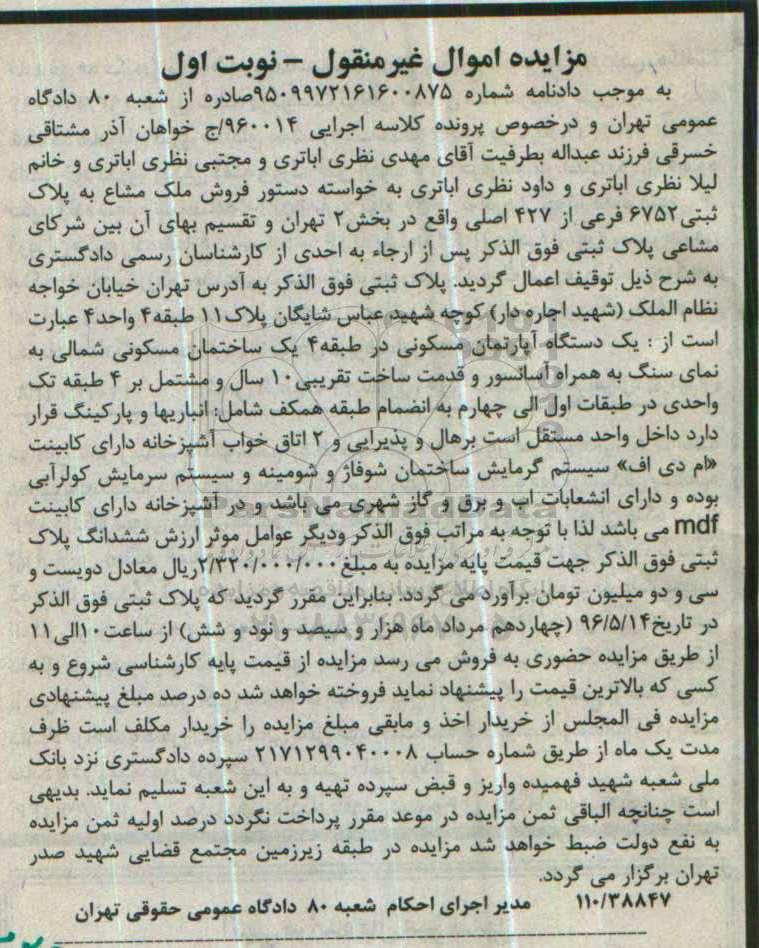 مزایده اموال غیرمنقول – نوبت اول
به موجب دادنامه شماره ۹۵۰۹۹۷۲۱۶۱۶۰۰۸۷۵صادره از شعبه ۸۰ دادگاه
عمومی تهران و درخصوص پرونده کلاسه اجرایی ۹۶۰۰۱۴/ج خواهان آذر مشتاقی
خسرقی فرزند عبداله بطرفیت آقای مهدی نظری اباتری و مجتبی نظری اباتری و خانم
لیلا نظری اباتری و داود نظری اباتری به خواسته دستور فروش ملک مشاع به پلاک
ثبتی۶۷۵۲ فرعی از ۴۲۷ اصلی واقع در بخش۲ تهران و تقسیم بهای آن بین شرکای
مشاعی پلاک ثبتی فوق الذکر پس از ارجاء به احدی از کارشناسان رسمی دادگستری
به شرح ذیل توقیف اعمال گردید. پلاک ثبتی فوق الذکر به آدرس تهران خیابان خواجه
نظام الملک (شهید اجاره دار) کوچه شهید عباس شایگان پلاک۱۱ طبقه۴ واحد۴ عبارت
است از : یک دستگاه آپارتمان مسکونی در طبقه۴ یک ساختمان مسکونی شمالی به
نمای سنگ به همراه آسانسور و قدمت ساخت تقریبی۱۰ سال و مشتمل بر ۴ طبقه تک
واحدی در طبقات اول الی چهارم به انضمام طبقه همکف شامل: انباریها و پارکینگ قرار
دارد داخل واحد مستقل است برهال و پذیرایی و ۲ اتاق خواب آشپزخانه دارای کابینت
«ام دی اف» سیستم گرمایش ساختمان شوفاژ و شومینه و سیستم سرمایش کولرآبی
بوده و دارای انشعابات اب و برق و گاز شهری می باشد و در آشپزخانه دارای کابینت
mdf می باشد لذا با توجه به مراتب فوق الذکر ودیگر عوامل موثر ارزش ششدانگ پلاک
ثبتی فوق الذکر جهت قیمت پایه مزایده به مبلغ ۲/۳۲۰/۰۰۰/۰۰۰ریال معادل دویست و
سی و دو میلیون تومان برآورد می گردد. بنابراین مقرر گردید که پلاک ثبتی فوق الذکر
در تاریخ۹۶/۵/۱۴ (چهاردهم مرداد ماه هزار و سیصد و نود و شش) از ساعت۱۰الی۱۱
از طریق مزایده حضوری به فروش می رسد مزایده از قیمت پایه کارشناسی شروع و به
کسی که بالاترین قیمت را پیشنهاد نماید فروخته خواهد شد ده درصد مبلغ پیشنهادی
مزایده فی المجلس از خریدار اخذ و مابقی مبلغ مزایده را خریدار مکلف است ظرف
مدت یک ماه از طریق شماره حساب ۲۱۷۱۲۹۹۰۴۰۰۰۸ سپرده دادگستری نزد بانک
ملی شعبه شهید فهمیده واریز و قبض سپرده تهیه و به این شعبه تسلیم نماید. بدیهی
است چنانچه الباقی ثمن مزایده در موعد مقرر پرداخت نگردد درصد اولیه ثمن مزایده
به نفع دولت ضبط خواهد شد مزایده در طبقه زیرزمین مجتمع قضایی شهید صدر
تهران برگزار می گردد.
۱۱۰/۳۸۸۴۷ مدیر اجرای احکام شعبه ۸۰ دادگاه عمومی حقوقی تهران